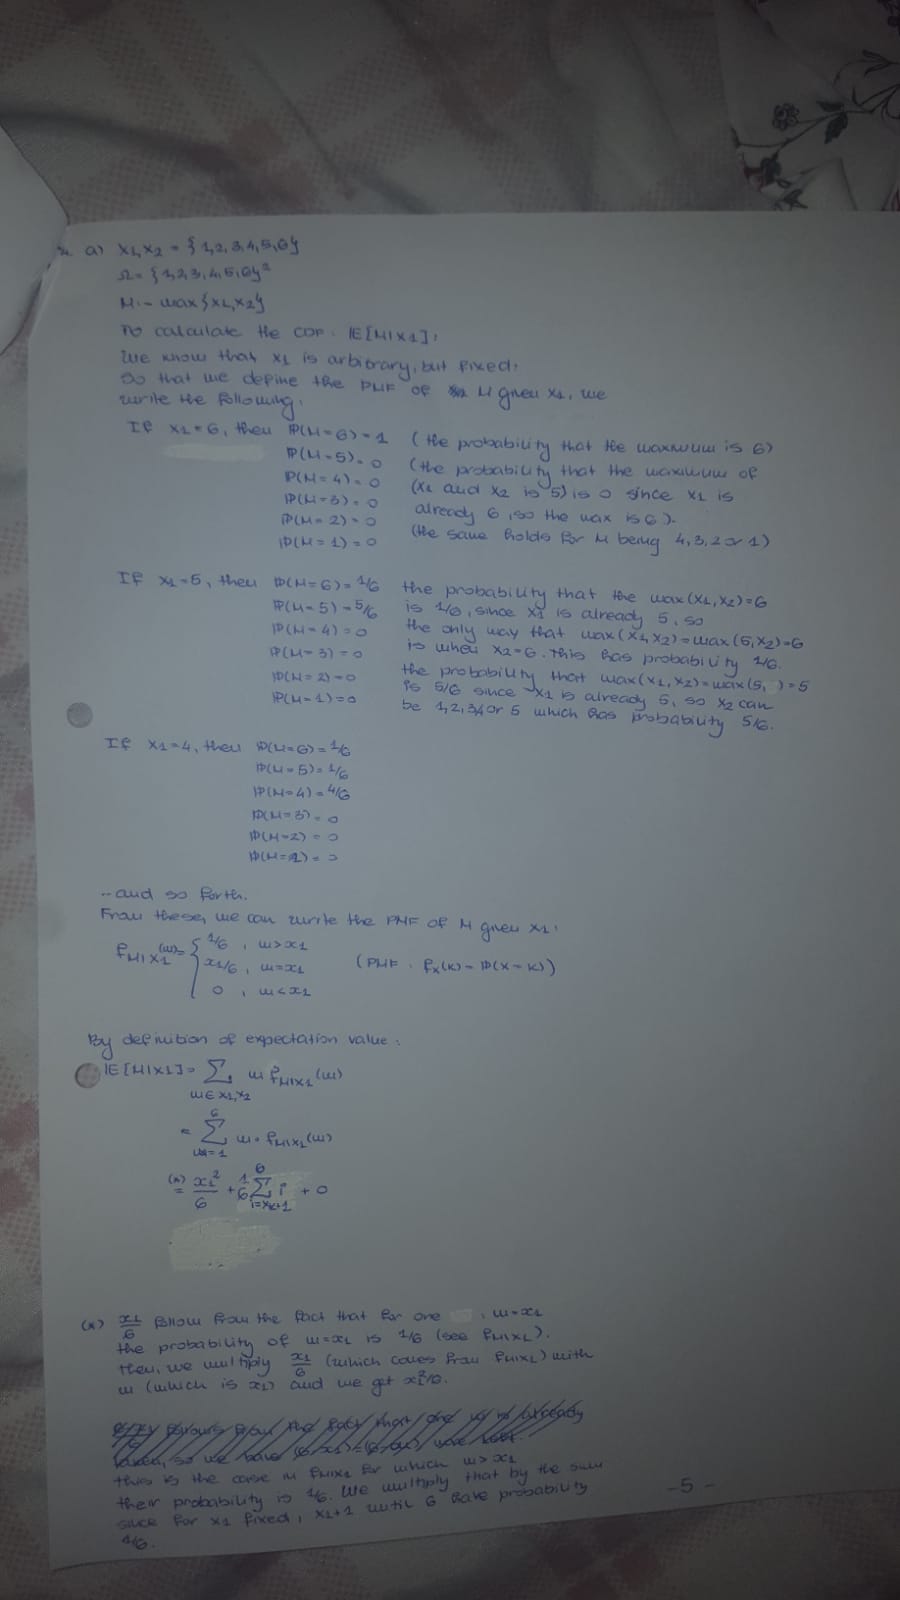 a) x1,x2 = {1,2,3,4,5,6}
Ω = {1,2,3,4,5,6}²
M := max{x1,x2}
To calculate the COP: IE[M|X1]:
We know that x1 is arbitrary, but fixed.
So that we define the PMF of M given x1, we
write the following:
If x1=6, then IP(M=6)=1 (the probability that the maximum is 6)
IP(M=5)=0 (the probability that the maximum of
IP(M=4)=0 (x1 and x2 is 5) is 0 since x1 is
IP(M=3)=0 already 6, so the max is 6).
IP(M=2)=0 (the same holds for M being 4,3,2 or 1)
IP(M=1)=0
If x1=5, then IP(M=6)=1/6 the probability that the max(x1,x2)=6
IP(M=5)=5/6 is 1/6, since x1 is already 5, so
IP(M=4)=0 the only way that max(x1,x2)=max(5,x2)=6
IP(M=3)=0 is when x2=6. This has probability 1/6.
IP(M=2)=0 the probability that max(x1,x2)=max(5, )=5
IP(M=1)=0 is 5/6 since x1 is already 5, so x2 can
be 1,2,3,4 or 5 which has probability 5/6.
If x1=4, then IP(M=6)=1/6
IP(M=5)=1/6
IP(M=4)=4/6
IP(M=3)=0
IP(M=2)=0
IP(M=1)=0
...and so forth.
From these, we can write the PMF of M given x1:
fM|X1(m)= { 1/6, m>x1
x1/6, m=x1 (PMF: fx(k)=IP(X=k))
0, m<x1
By definition of expectation value:
IE[M|X1]= Σ m fM|X1(m)
m∈x1,x2
= Σ m·fM|X1(m)
(*) = x1²/6 + 1/6 Σ i + 0
(*) x1/6 follow from the fact that for one , m=x1
the probability of m=x1 is 1/6 (see fM|X1).
then, we multiply x1/6 (which comes from fM|X1) with
m (which is x1) and we get x1²/6.
this is the case in fM|X1 for which m>x1
their probability is 1/6. We multiply that by the sum
since for x1 fixed, x1+1 until 6 have probability
1/6.
-5-